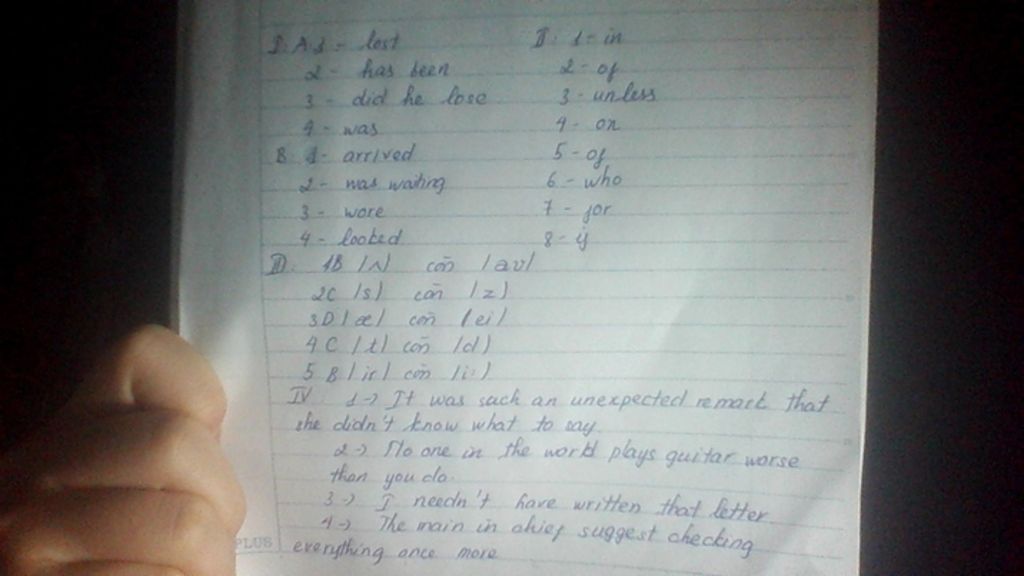 I. A 1 - lost
2 - has been
3 - did he lose
4 - was
B. 1 - arrived
2 - was waiting
3 - wore
4 - looked
II: 1 - in
2 - of
3 - unless
4 - on
5 - of
6 - who
7 - for
8 - if
III. 1B /ʌ/ còn /aʊ/
2C /s/ còn /z/
3D /æ/ còn /ei/
4C /t/ còn /d/
5 B /ir/ còn /i:/
IV. 1 -> It was such an unexpected remark that
she didn't know what to say.
2 -> No one in the world plays guitar worse
than you do.
3 -> I needn't have written that letter
4 -> The main in chief suggest checking
everything once more
PLUS